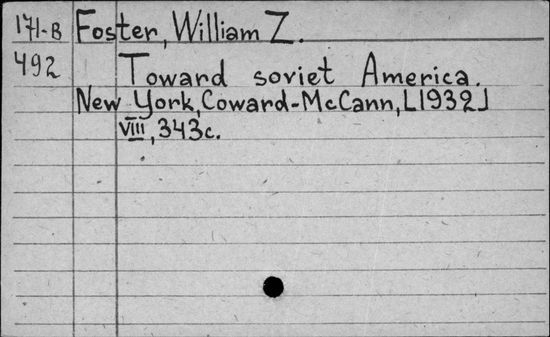 171-B Foster, William Z.
492 Toward soviet America.
New York, Coward-McCann, [1932]
VIII, 343c.